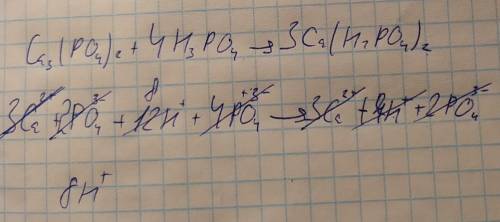 Ca₃(PO₄)₂ + 4H₃PO₄ → 3Ca(H₂PO₄)₂
8
3Ca²⁺ + 2PO₄³⁻ + 12H⁺ + 4PO₄³⁻ → 3Ca²⁺ + 4H⁺ + 2PO₄
8H⁺